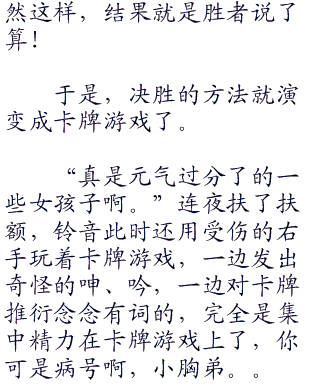 然这样，结果就是胜者说了
算！
于是，决胜的方法就演
变成卡牌游戏了。
“真是元气过分了的一
些女孩子啊。”连夜扶了扶
额，铃音此时还用受伤的右
手玩着卡牌游戏，一边发出
奇怪的呻、吟，一边对卡牌
推衍念念有词的，完全是集
中精力在卡牌游戏上了，你
可是病号啊，小胸弟。。